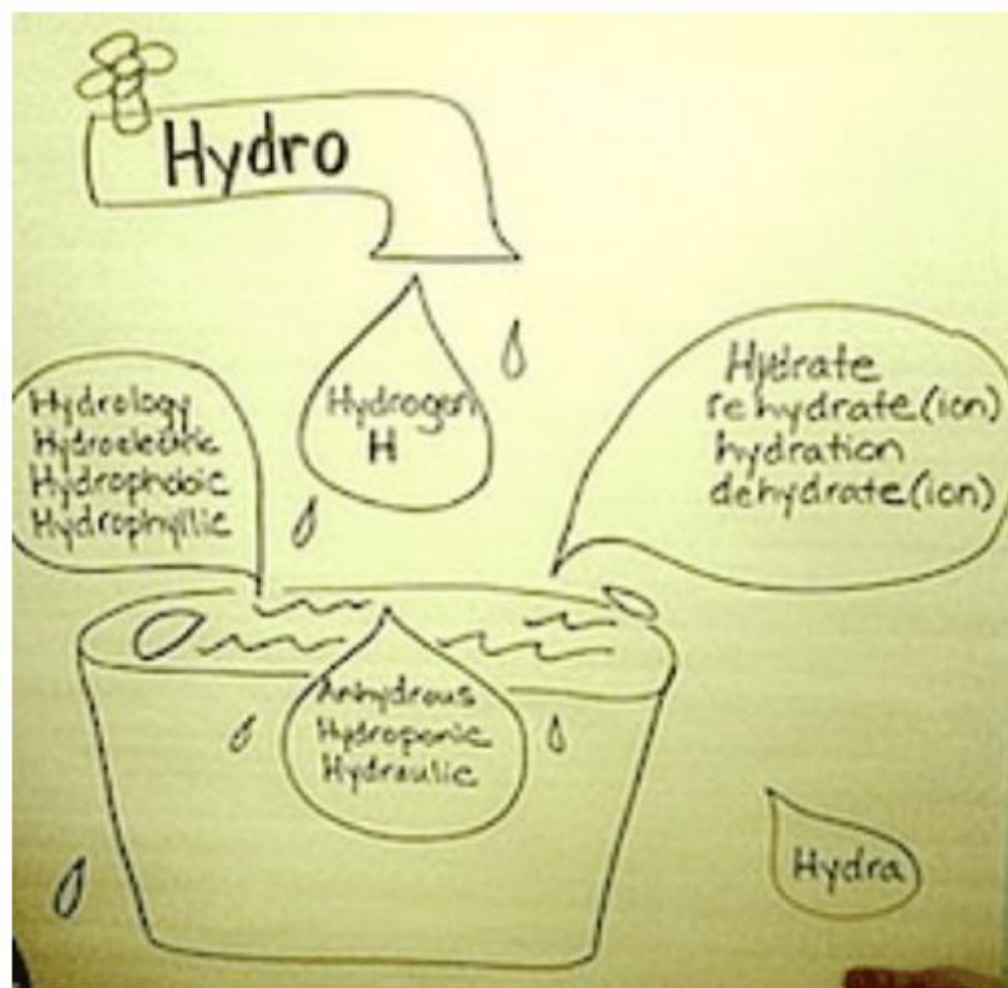 Hydro
Hydrogen
H
Hydrology
Hydroelectric
Hydrophobic
Hydrophyllic
Hydrate
rehydrate(ion)
hydration
dehydrate(ion)
Anhydrous
Hydroponic
Hydraulic
Hydra